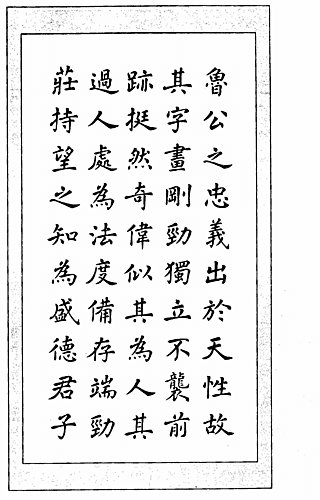 魯公之忠義出於天性故
其字畫剛勁獨立不襲前
跡挺然奇偉似其為人其
過人處為法度備存端勁
莊持望之知為盛德君子